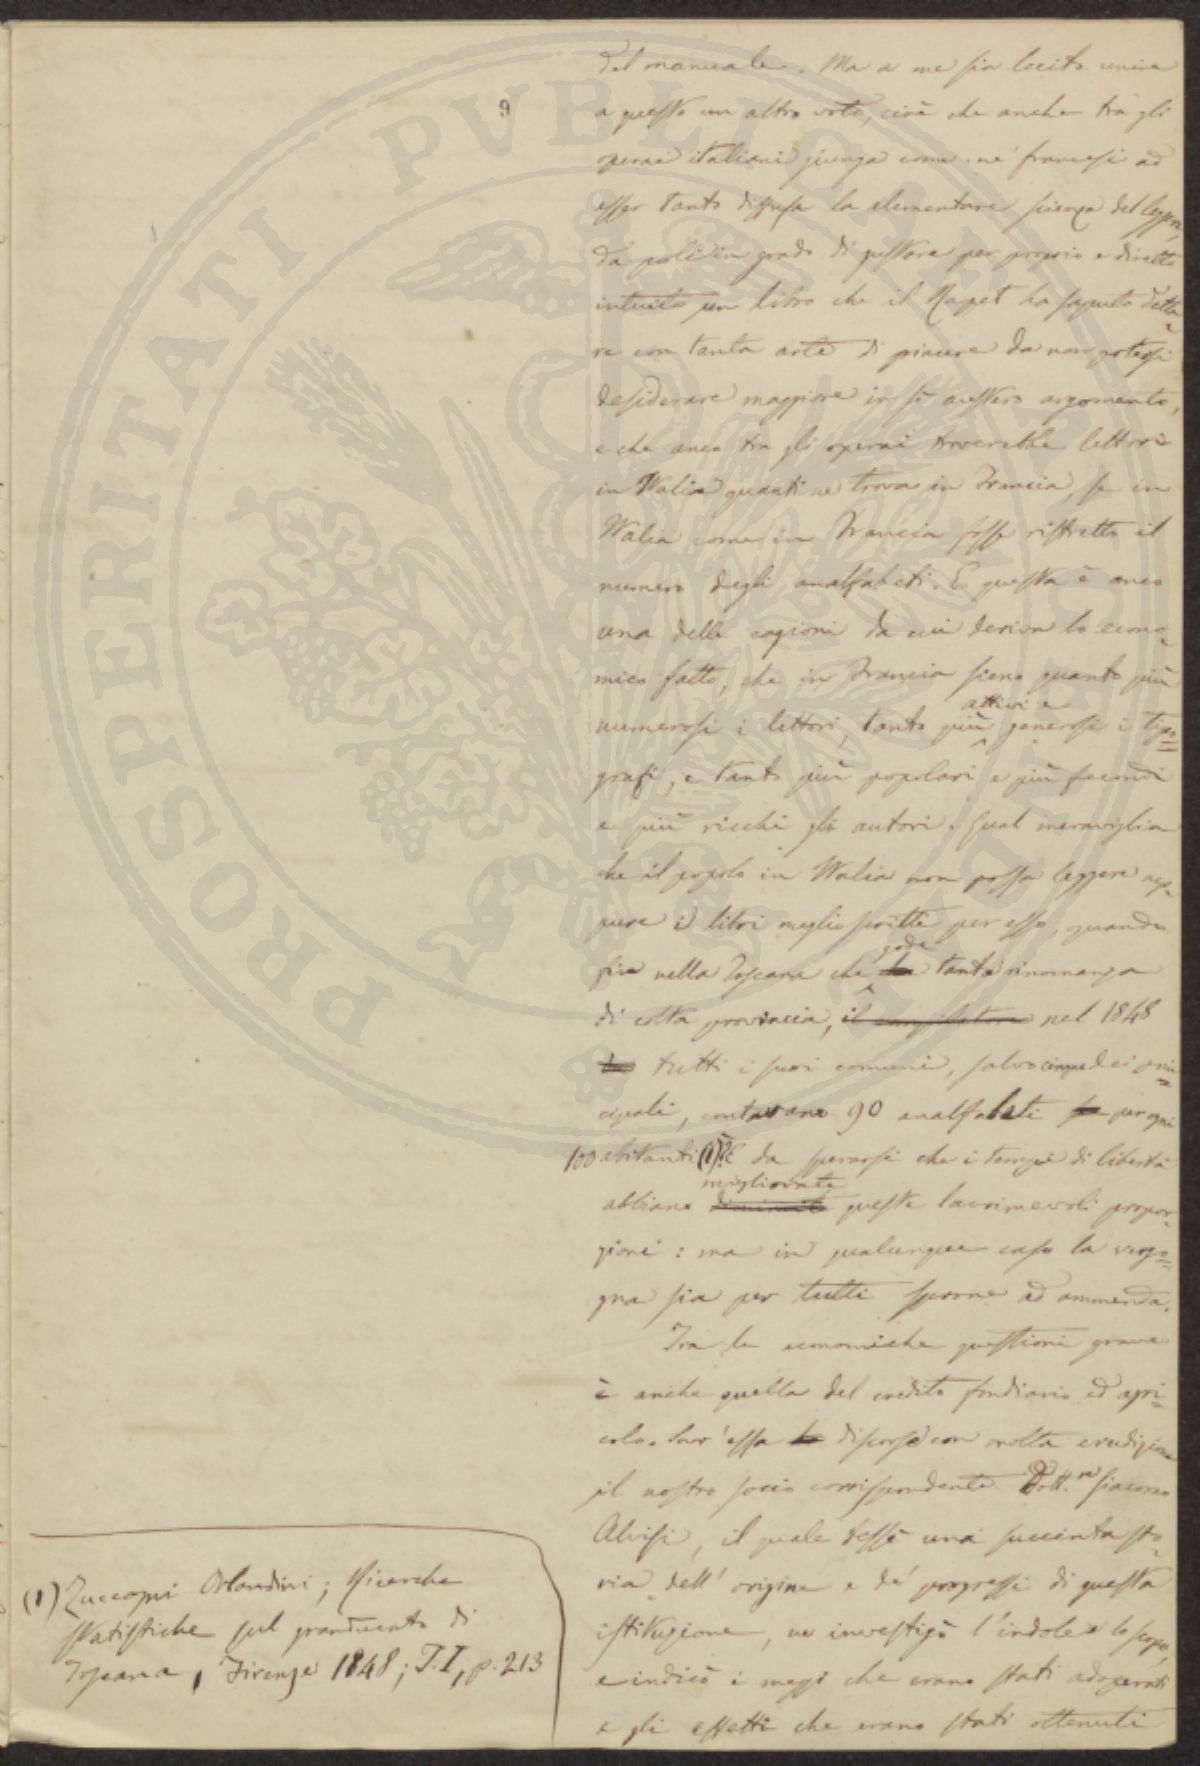 9
del manuale. Ma a me sia lecito unire
a questo un altro voto, cioè che anche tra gli
operai italiani giunga come ne' francesi ad
esser tanto diffusa la elementare scienza del leggere,
da porli in grado di gustare per proprio e diretto
intuito un libro che il Rapet ha saputo detta-
re con tanta arte di piacere da non potersi
desiderare maggiore in sì austero argomento,
e che anco tra gli operai troverebbe lettori
in Italia quanti ne trova in Francia, se in
Italia come in Francia fosse ristretto il
numero degli analfabeti. E questa è anco
una delle cagioni da cui deriva lo econo-
mico fatto, che in Francia sieno quanto più
attivi e
numerosi i lettori, tanto più generosi i tipo-
grafi, e tanto più popolari e più fecondi
e più ricchi gli autori. Qual meraviglia
che il popolo in Italia non possa leggere nep-
pure i libri meglio scritti per esso, quando
gode
fin nella Toscana che ha tanta rinomanza
di colta provincia, il compilatore nel 1848
tutti i suoi comuni, salvo cinque dei prin-
cipali, contavano 90 analfabeti per ogni
100 abitanti (1)? È da sperarsi che i tempi di libertà
migliorate
abbiano diminuite queste lacrimevoli propor-
zioni: ma in qualunque caso la vergo-
gna sia per tutti sprone ad ammenda.
Tra le economiche questioni grave
è anche quella del credito fondiario ed agri-
colo. Sovr'essa discorse con molta erudizione
il nostro socio corrispondente Dott.re Giacomo
Alvisi, il quale tessè una succinta sto-
ria dell'origine e de' progressi di questa
istituzione, ne investigò l'indole e lo scopo,
e indicò i mezzi che erano stati adoperati
e gli effetti che erano stati ottenuti
(1) Zuccagni Orlandini; Ricerche
statistiche sul granducato di
Toscana, Firenze 1848; T. I, p. 213
PROSPERITATI PVBLICAE